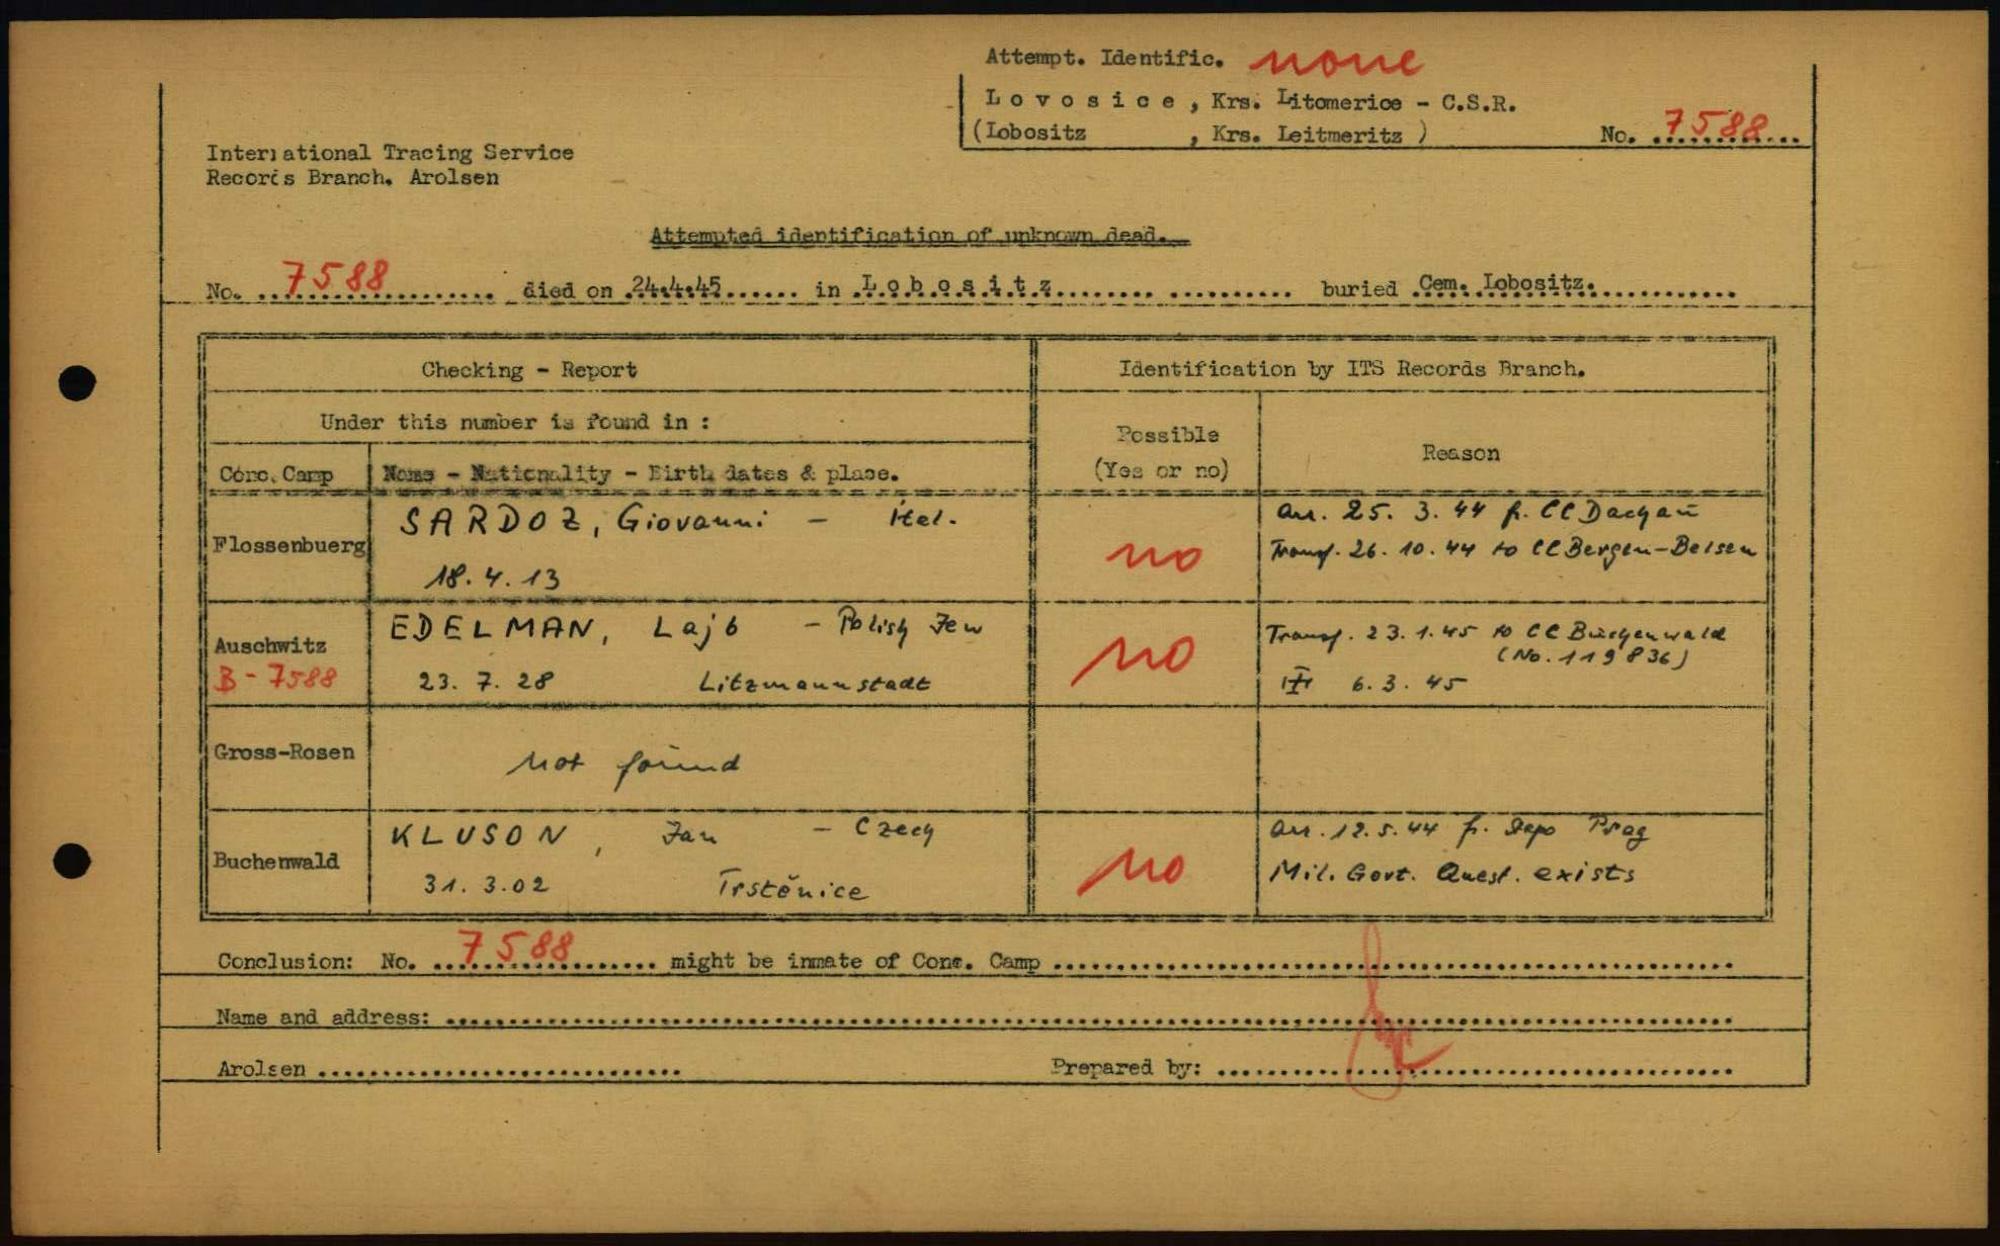 Attempt. Identific. none
Lovosice, Krs. Litomerice - C.S.R.
(Lobositz , Krs. Leitmeritz ) No. 7588
International Tracing Service
Records Branch. Arolsen
Attempted identification of unknown dead.
No. 7588 died on 24.4.45 in Lobositz buried Cem. Lobositz.
Checking - Report Identification by ITS Records Branch.
Under this number is found in :
Possible
(Yes or no)
Reason
Conc. Camp Name - Nationality - Birth dates & place.
Flossenbuerg
SARDOZ, Giovanni - Ital.
18.4.13
no
arr. 25. 3. 44 fr. CC Dachau
Transf. 26. 10. 44 to CC Bergen-Belsen
Auschwitz
B-7588
EDELMAN, Lajb - Polish Jew
23. 7. 28 Litzmannstadt
no
Transf. 23.1.45 to CC Buchenwald
(No. 119836)
6.3.45
Gross-Rosen
not found
Buchenwald
KLUSON, Jan - Czech
31. 3.02 Trstěnice
no
arr. 12.5.44 fr. Stapo Prag
Mil. Govt. Quest. exists
Conclusion: No. 7588 might be inmate of Conc. Camp
Name and address:
Arolsen Prepared by: